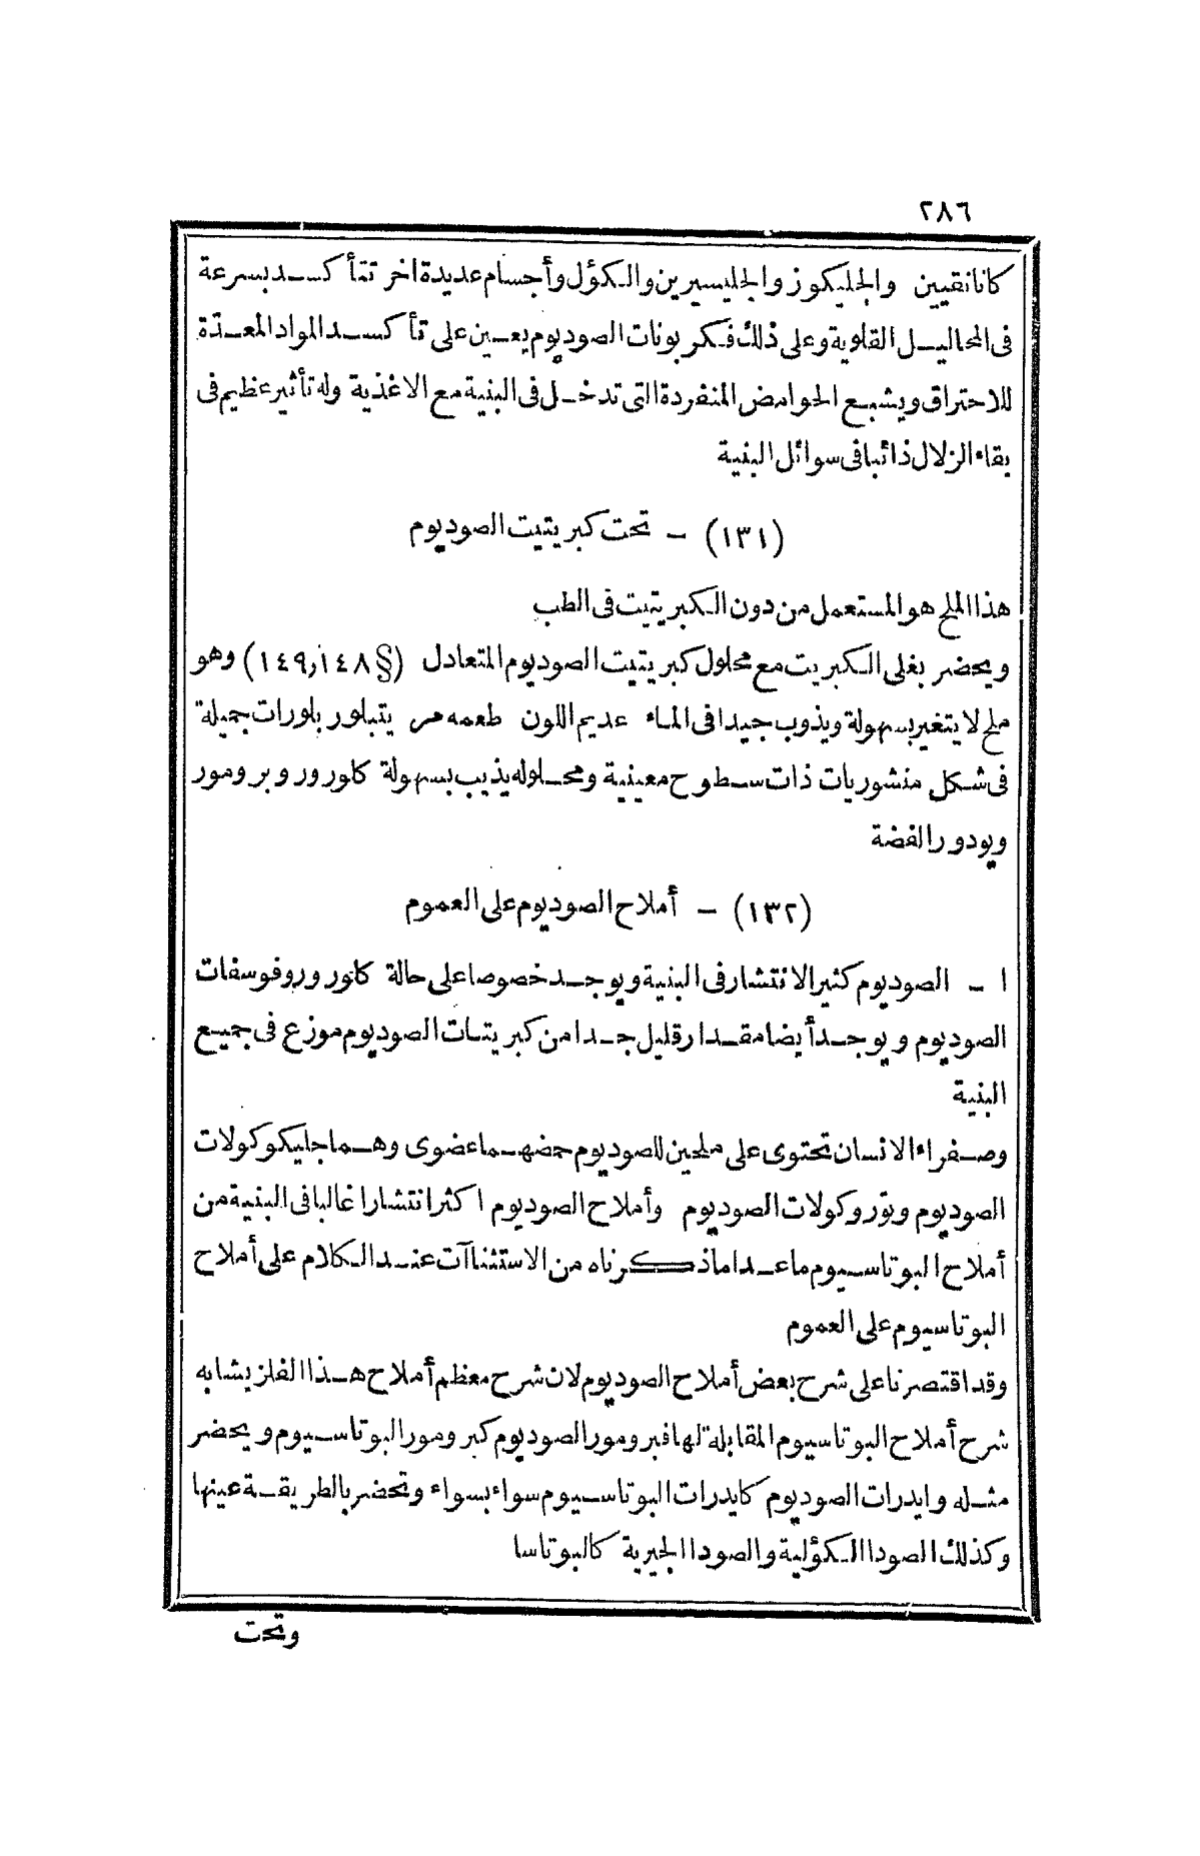 ٢٨٦
كانا نقيين والجليكوز والجليسيرين والكؤل وأجسام عديدة اخر تتأكسد بسرعة
فى المحاليل القلوية وعلى ذلك فكربونات الصوديوم يعين على تأكسد المواد المعدّة
للاحتراق ويشبع الحوامض المنفردة التى تدخل فى البنية مع الاغذية وله تأثير عظيم فى
بقاء الزلال ذائبا فى سوائل البنية
(١٣١) – تحت كبريتيت الصوديوم
هذا الملح هو المستعمل من دون الكبريتيت فى الطب
ويحضر بغلى الكبريت مع محلول كبريتيت الصوديوم المتعادل (§ ١٤٨ر١٤٩) وهو
ملح لا يتغير بسهولة ويذوب جيدا فى الماء عديم اللون طعمه مر يتبلور بلورات جميلة
فى شكل منشوريات ذات سطوح معينية ومحلوله يذيب بسهولة كلورور وبرومور
ويودور الفضة
(١٣٢) – أملاح الصوديوم على العموم
ا – الصوديوم كثير الانتشار فى البنية ويوجد خصوصا على حالة كلورور وفوسفات
الصوديوم ويوجد أيضا مقدار قليل جدا من كبريتات الصوديوم موزع فى جميع
البنية
وصفراء الانسان تحتوى على ملحين للصوديوم حمضهما عضوى وهما جليكوكولات
الصوديوم وتوروكولات الصوديوم وأملاح الصوديوم اكثر انتشارا غالبا فى البنية من
أملاح البوتاسيوم ما عدا ما ذكرناه من الاستثناآت عند الكلام على أملاح
البوتاسيوم على العموم
وقد اقتصرنا على شرح بعض أملاح الصوديوم لان شرح معظم أملاح هذا الفلز يشابه
شرح أملاح البوتاسيوم المقابلة لها فبرومور الصوديوم كبرومور البوتاسيوم ويحضر
مثله وايدرات الصوديوم كايدرات البوتاسيوم سواء بسواء وتحضر بالطريقة عينها
وكذلك الصودا الكؤلية والصودا الجيرية كالبوتاسا
وتحت